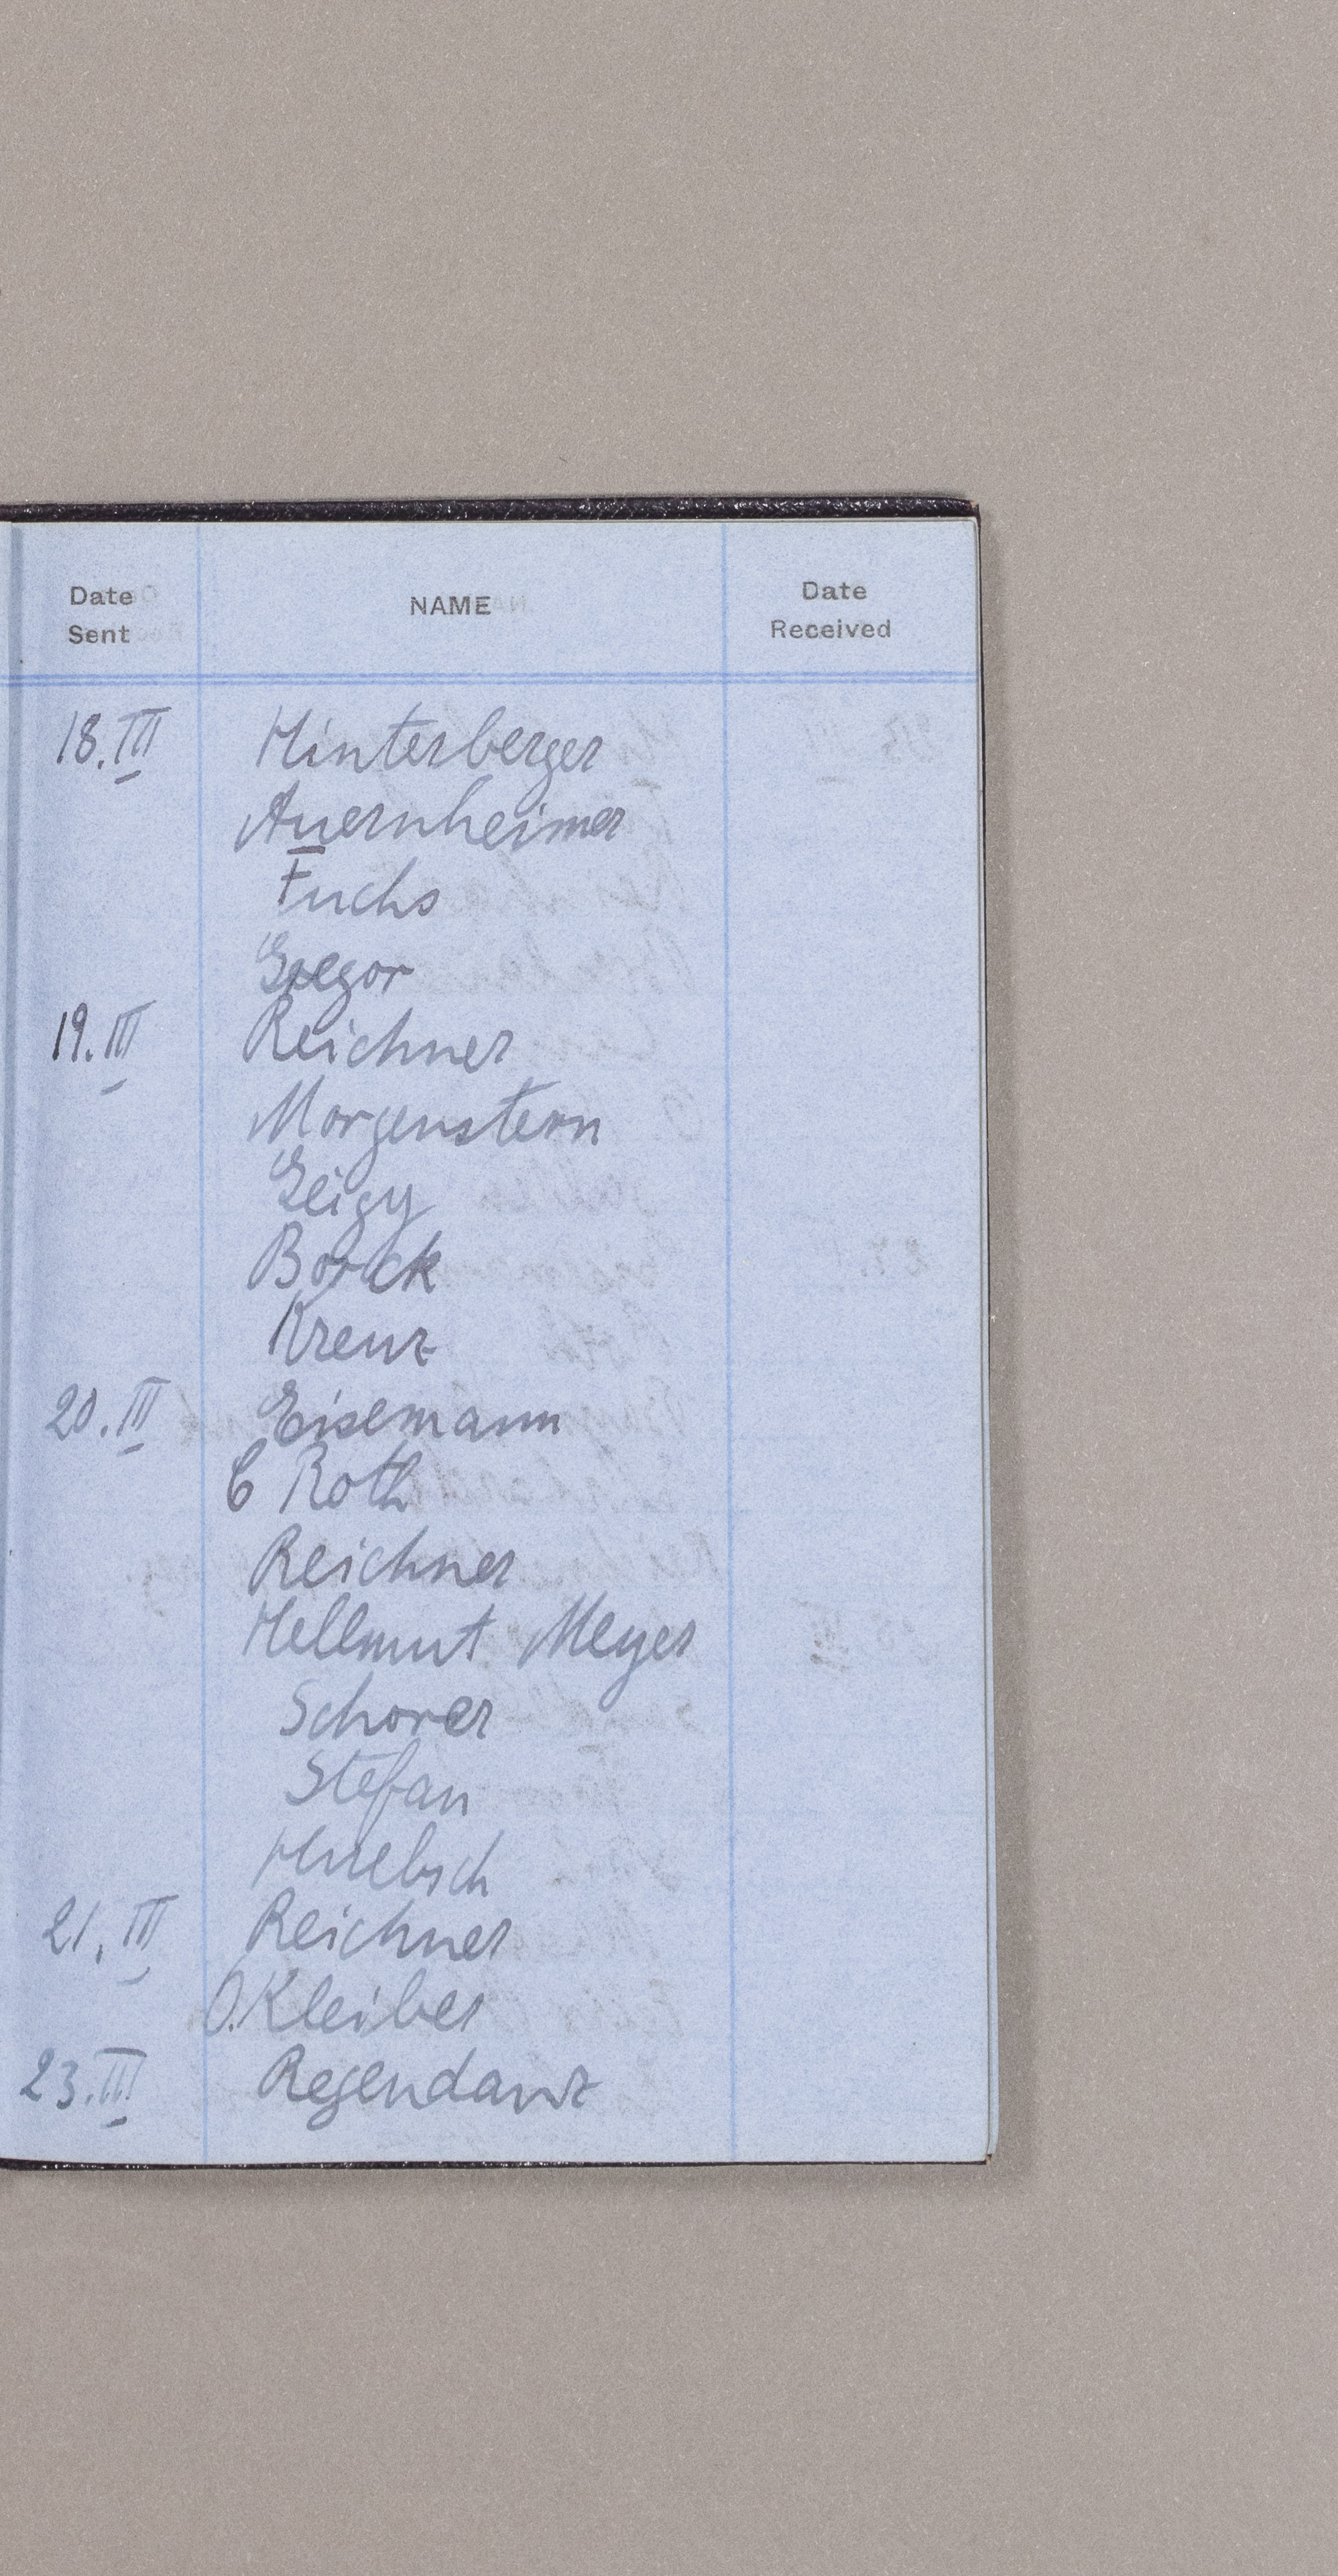 Date Sent NAME Date Received
18.III Hinterberger
Auernheimer
Fuchs
Gregor
19.III Reichner
Morgenstern
Geigy
Borck
Kreuz
20.III Eisemann
C Roth
Reichner
Hellmut Meyer
Schorer
Stefan
Huebsch
21.III Reichner
O. Kleiber
23.III Regendanz